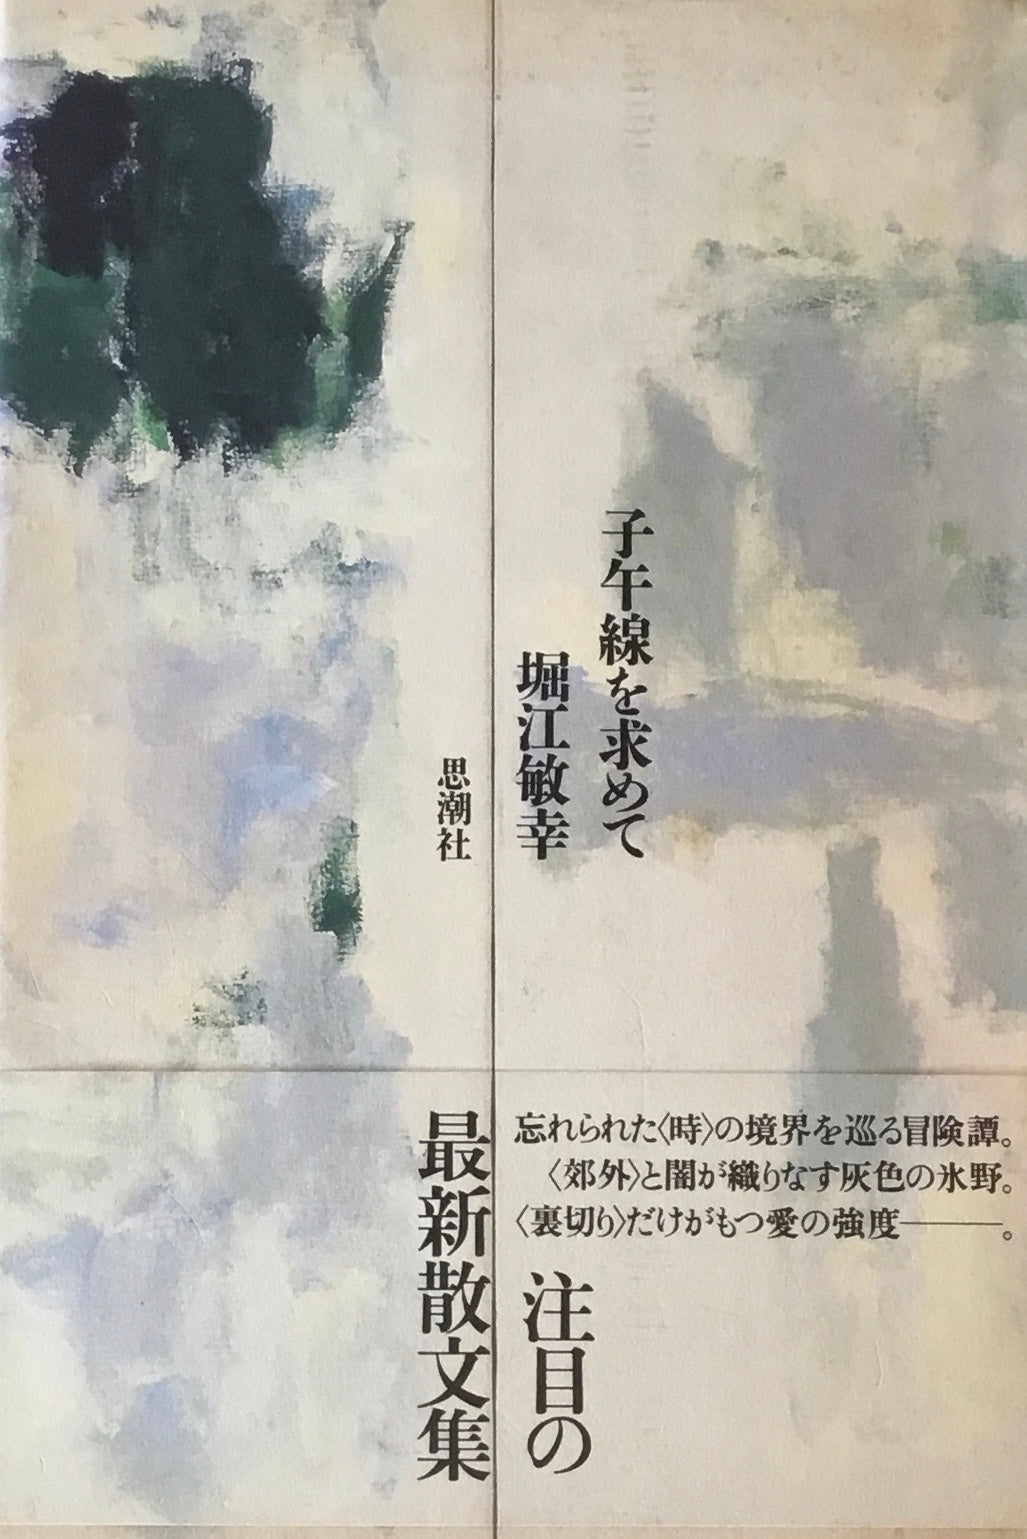 子午線を求めて
堀江敏幸
思潮社
忘れられた〈時〉の境界を巡る冒険譚。
〈郊外〉と闇が織りなす灰色の氷野。
〈裏切り〉だけがもつ愛の強度———。
注目の
最新散文集